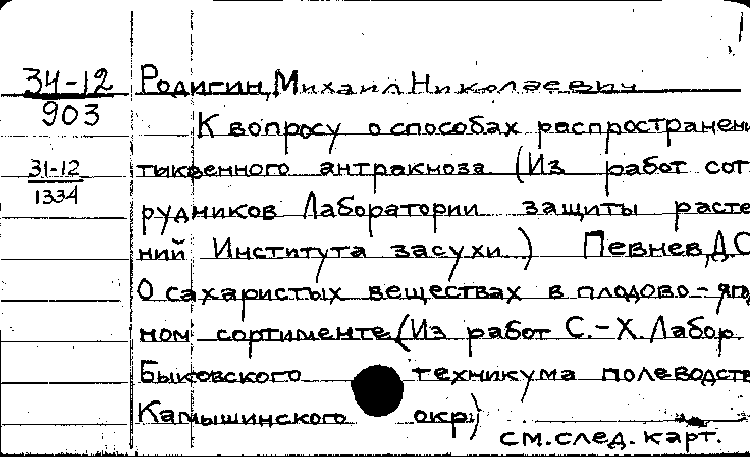 34-12
903
31-12
1334
Родигин, Михаил Николаевич
К вопросу о способах распространени
тыквенного антракноза (Из работ сот
рудников Лаборатории защиты расте
ний Института засухи) Певнев, Д.С
О сахаристых веществах в плодово-яго
ном сортименте (Из работ С.-Х. Лабор.
Быковского техникума полеводств
Камышинского окр)
см. след. карт.